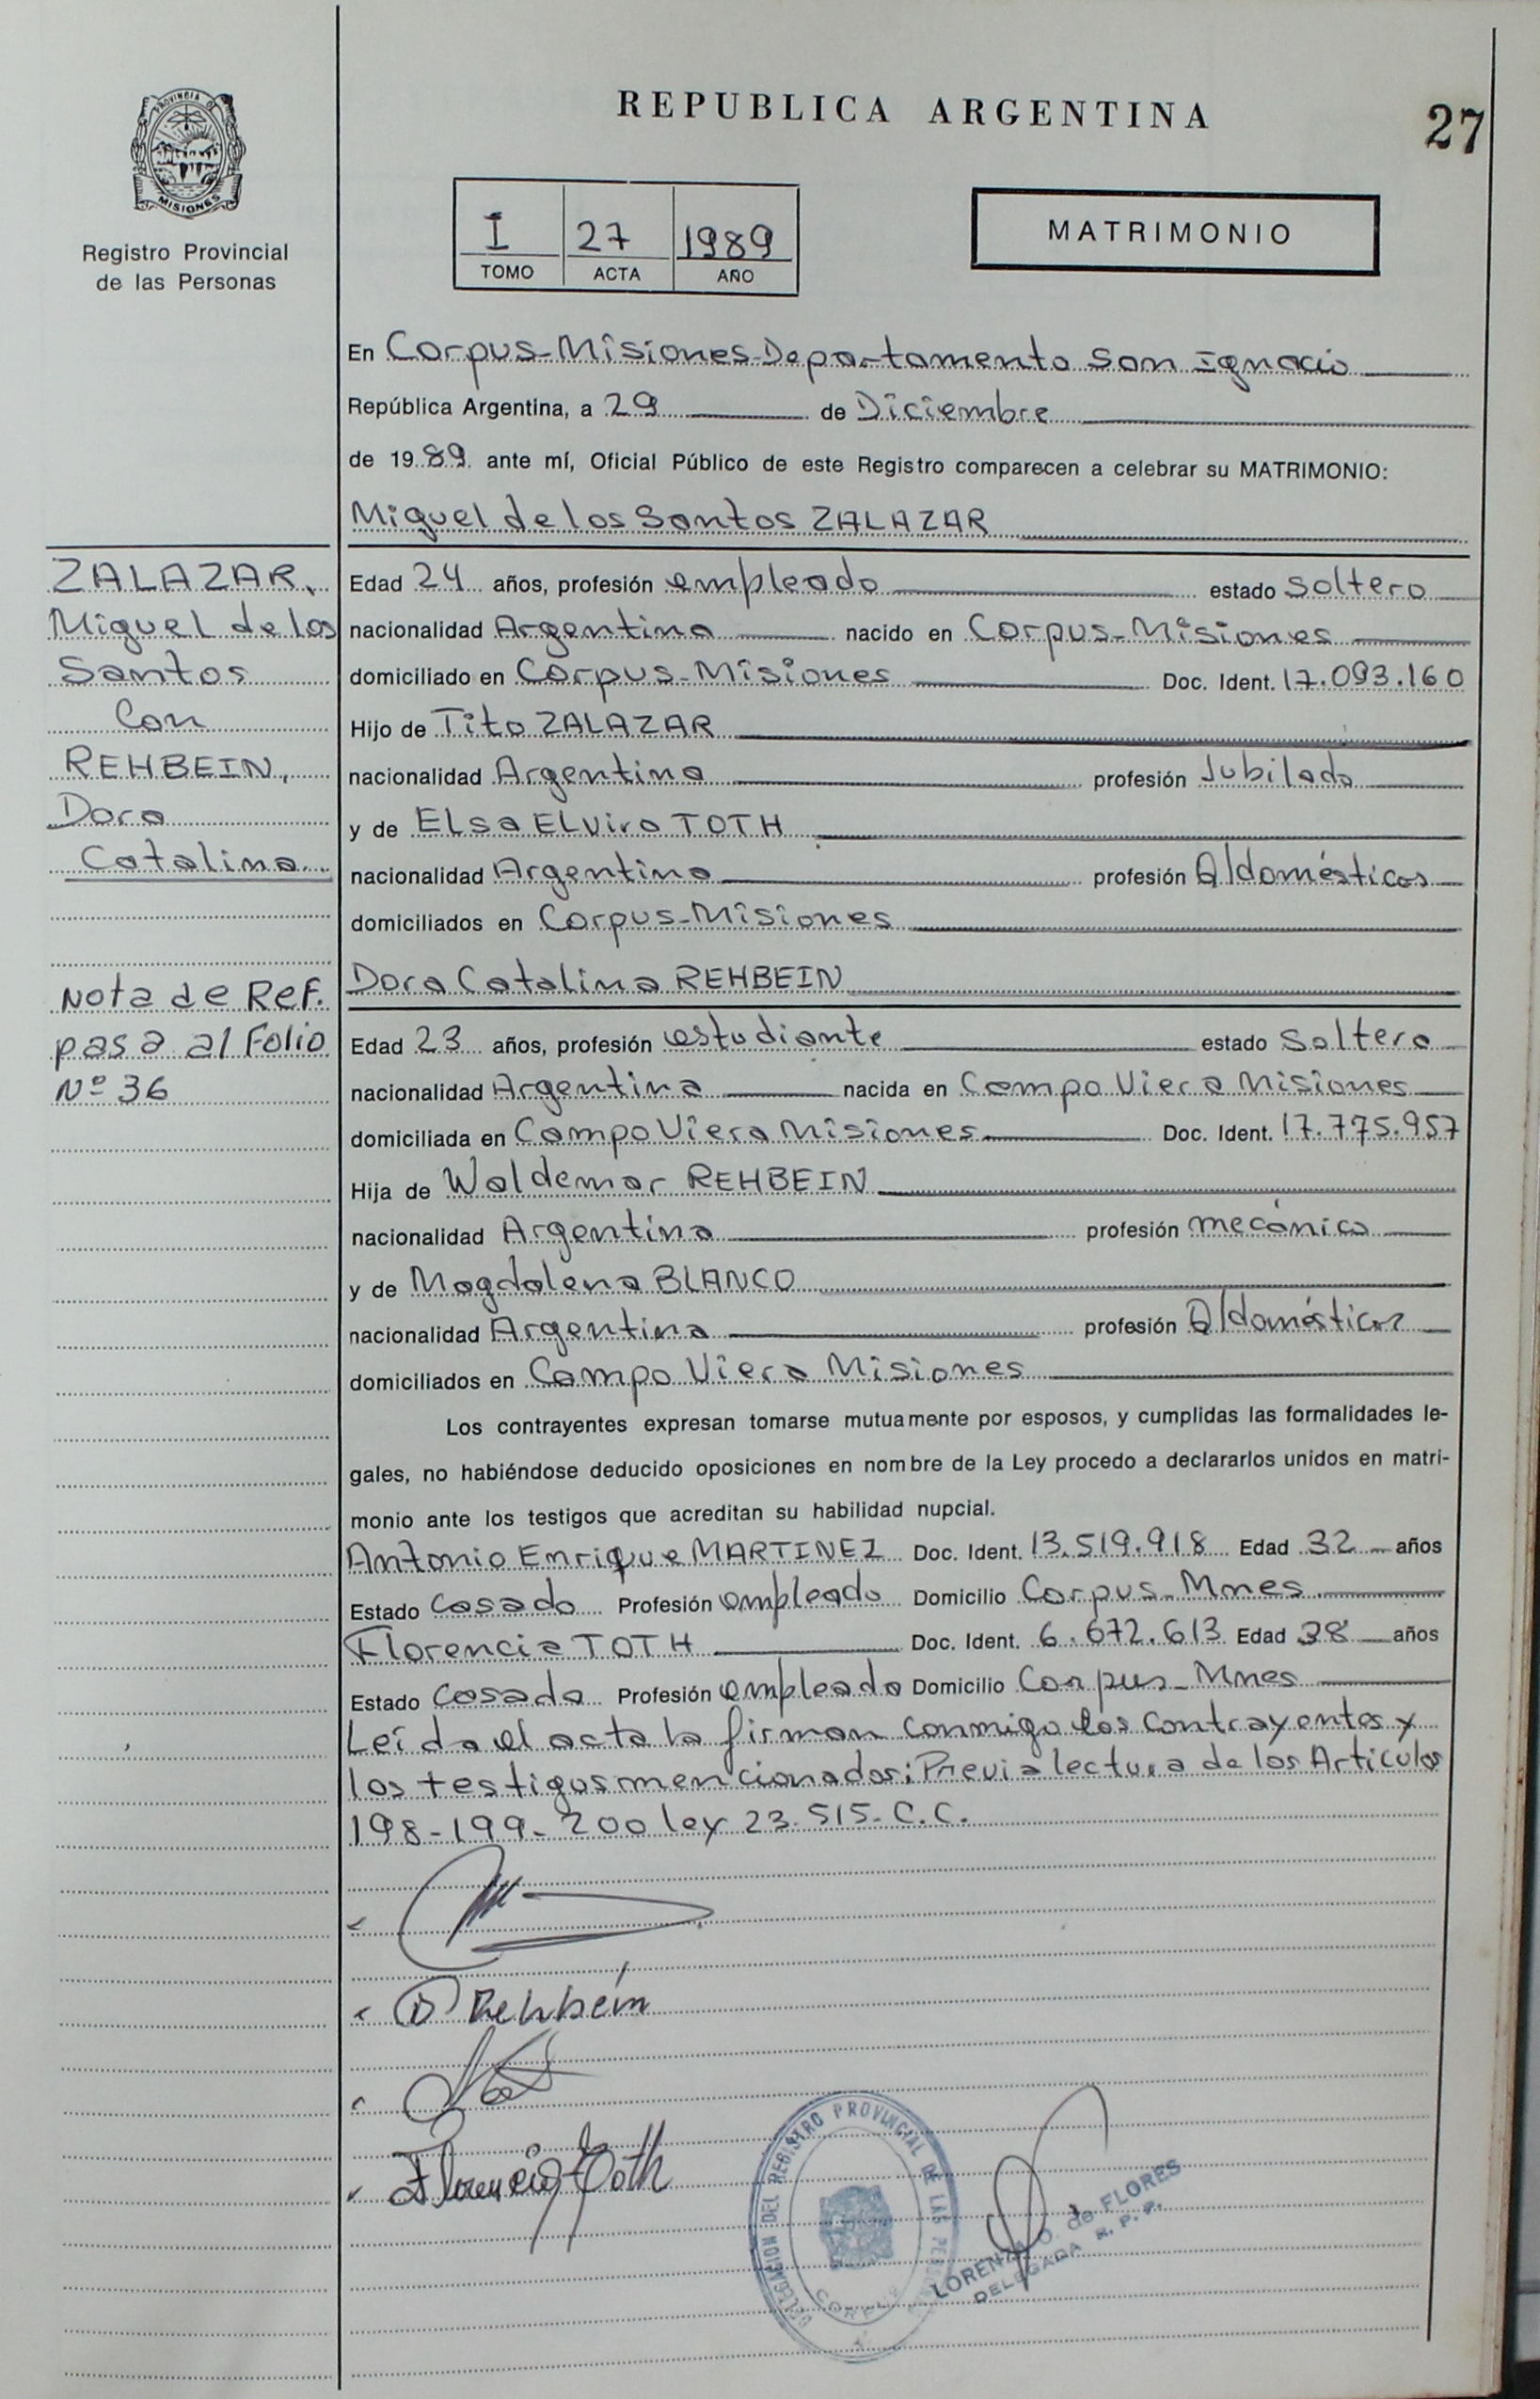 REPUBLICA ARGENTINA
27
PROVINCIA DE
MISIONES
Registro Provincial
de las Personas
I 27 1989
TOMO ACTA AÑO
MATRIMONIO
En Corpus-Misiones-Departamento San Ignacio
República Argentina, a 29 de Diciembre
de 1989 ante mí, Oficial Público de este Registro comparecen a celebrar su MATRIMONIO:
Miguel de los Santos ZALAZAR
ZALAZAR,
Miguel de los
Santos
Con
REHBEIN,
Dora
Catalina
Edad 24 años, profesión empleado estado soltero
nacionalidad Argentina nacido en Corpus-Misiones
domiciliado en Corpus-Misiones Doc. Ident. 17.093.160
Hijo de Tito ZALAZAR
nacionalidad Argentina profesión Jubilado
y de Elsa Elvira TOTH
nacionalidad Argentina profesión Q/domésticos
domiciliados en Corpus-Misiones
Nota de Ref.
pasa al Folio
Nº 36
Dora Catalina REHBEIN
Edad 23 años, profesión estudiante estado soltera
nacionalidad Argentina nacida en Campo Viera Misiones
domiciliada en Campo Viera Misiones Doc. Ident. 17.775.957
Hija de Waldemar REHBEIN
nacionalidad Argentina profesión mecánico
y de Magdalena BLANCO
nacionalidad Argentina profesión Q/domésticos
domiciliados en Campo Viera Misiones
Los contrayentes expresan tomarse mutuamente por esposos, y cumplidas las formalidades le-
gales, no habiéndose deducido oposiciones en nombre de la Ley procedo a declararlos unidos en matri-
monio ante los testigos que acreditan su habilidad nupcial.
Antonio Enrique MARTINEZ Doc. Ident. 13.519.918 Edad 32 años
Estado casado Profesión empleado Domicilio Corpus-Mnes
Florencia TOTH Doc. Ident. 6.672.613 Edad 38 años
Estado casada Profesión empleada Domicilio Corpus-Mnes
Leída el acta la firman conmigo los contrayentes y
los testigos mencionados; Previa lectura de los Articulos
198-199-200 ley 23.515-C.C.
D Rehbein
Florencia Toth
DELEGACION DEL REGISTRO PROVINCIAL DE LAS PERSONAS
CORPUS
LORENZA O. de FLORES
DELEGADA R. P. P.